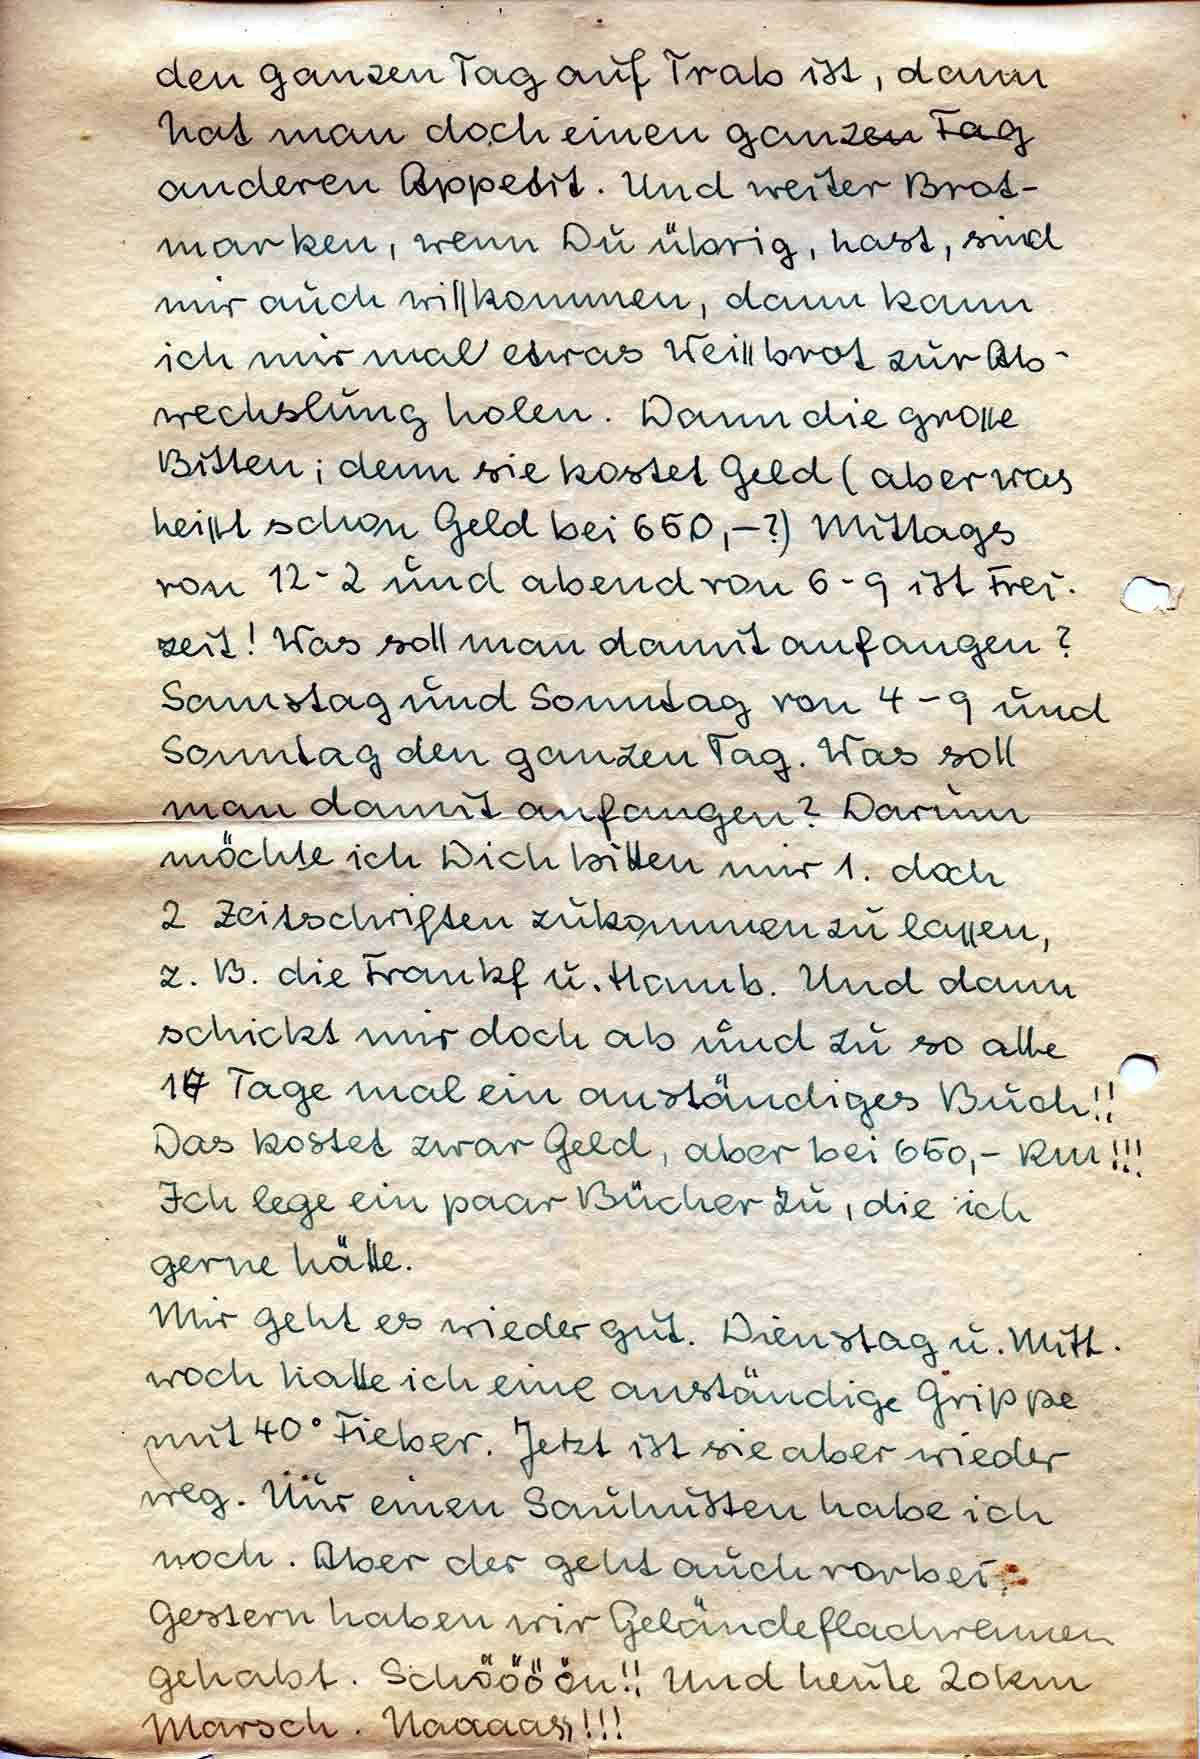 den ganzen Tag auf Trab ist, dann
hat man doch einen ganzen Tag
anderen Appetit. Und weiter Brot-
marken, wenn Du übrig, hast, sind
mir auch willkommen, dann kann
ich mir mal etwas Weißbrot zur Ab-
wechslung holen. Dann die große
Bitten; denn sie kostet Geld (aber was
heißt schon Geld bei 650,-?) Mittags
von 12-2 und abend von 6-9 ist Frei-
zeit! Was soll man damit anfangen?
Samstag und Sonntag von 4-9 und
Sonntag den ganzen Tag. Was soll
man damit anfangen? Darum
möchte ich Dich bitten mir 1. doch
2 Zeitschriften zukommen zu lassen,
z. B. die Frankf u. Hamb. Und dann
schickt mir doch ab und zu so alle
Tage mal ein anständiges Buch!!
Das kostet zwar Geld, aber bei 650,- Rm!!!
Ich lege ein paar Bücher zu, die ich
gerne hätte.
Mir geht es wieder gut. Dienstag u. Mitt-
woch hatte ich eine anständige Grippe
mit 40° Fieber. Jetzt ist sie aber wieder
weg. Nur einen Sauhusten habe ich
noch. Aber der geht auch vorbei.
Gestern haben wir Geländeflachrennen
gehabt. Schöööön!! Und heute 20km
Marsch. Naaaass!!!